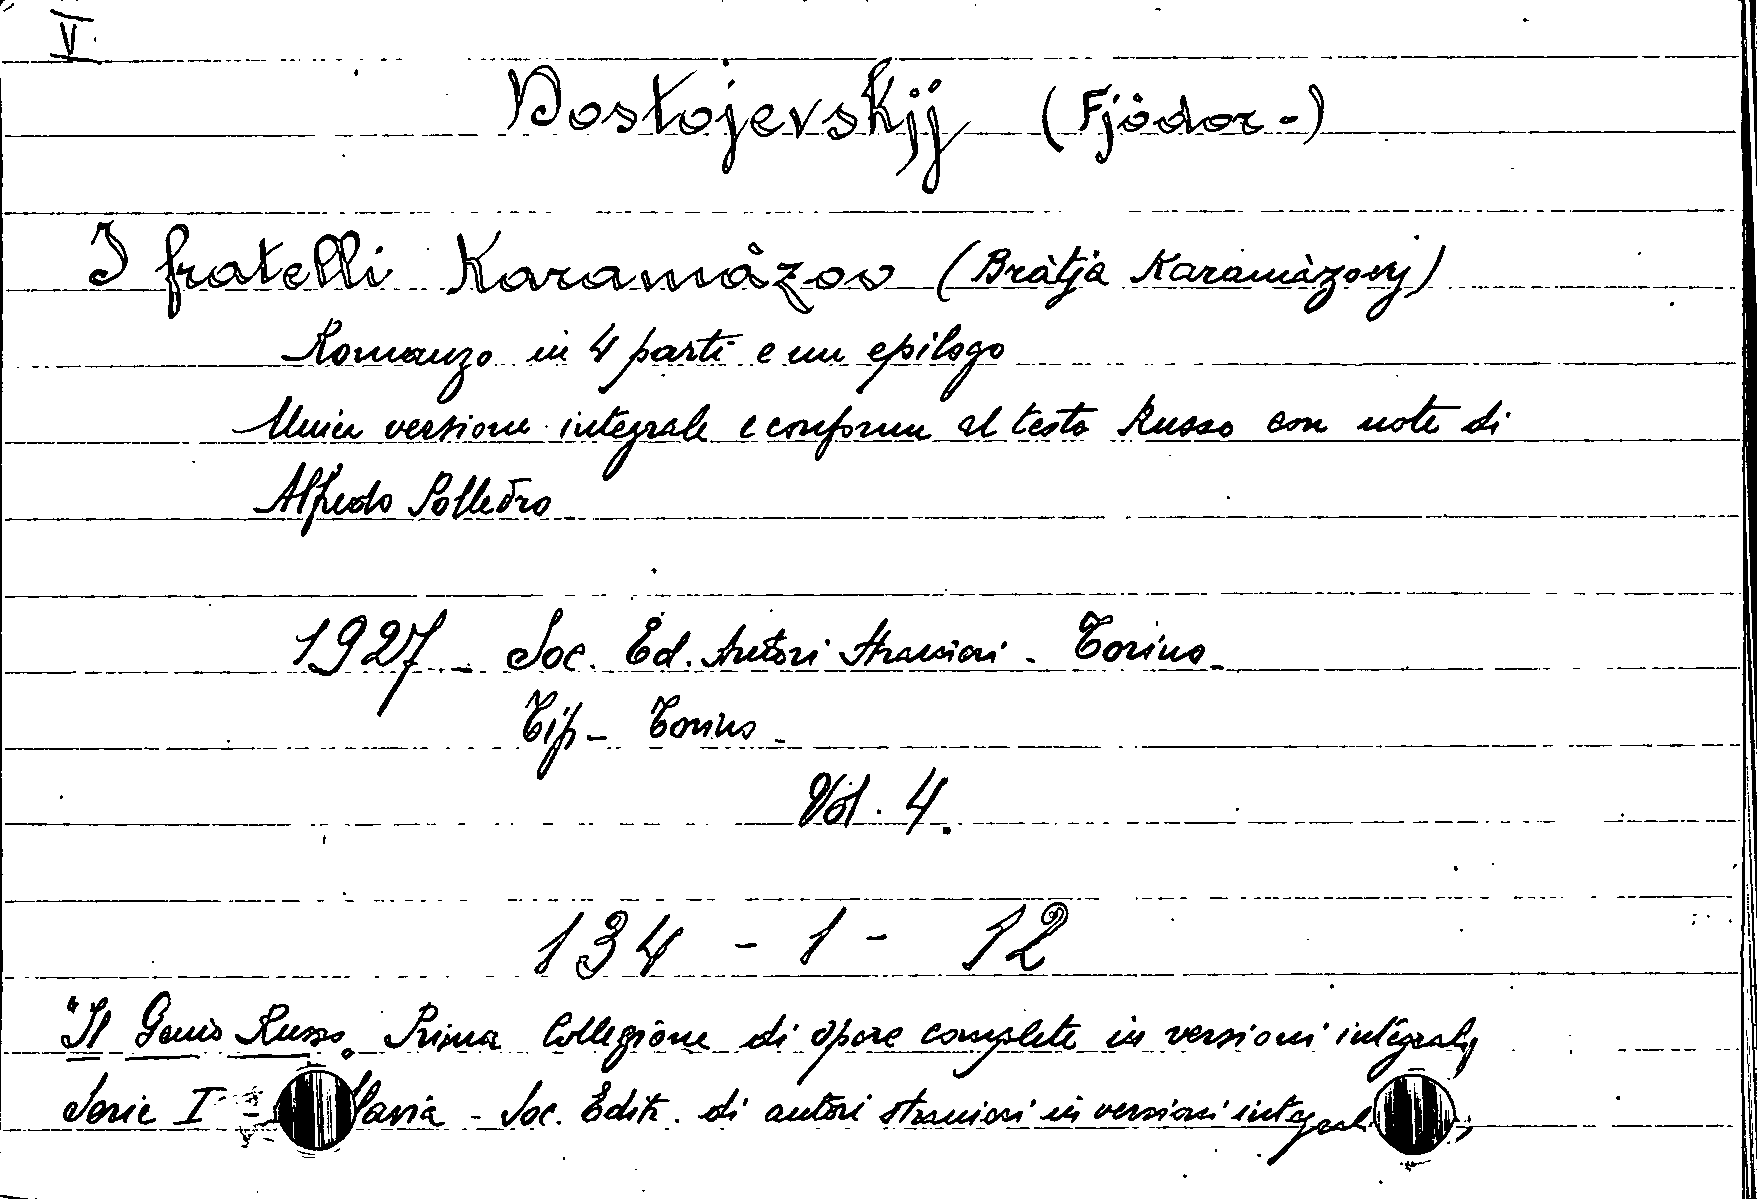 V
Dostojevskij (Fjòdor -)
I fratelli Karamàzov (Bràtja Karamàzovy)
Romanzo in 4 parti e un epilogo
Unica versione integrale e conforme al testo Russo con note di
Alfredo Polledro
1927 - Soc. Ed. Autori Stranieri - Torino -
Tip - Torino -
Vol. 4.
134 - 1 - 12
"Il Genio Russo" Prima Collezione di opere complete in versioni integrali,
Serie I - Slavia - Soc. Edit. di autori stranieri in versioni integrali